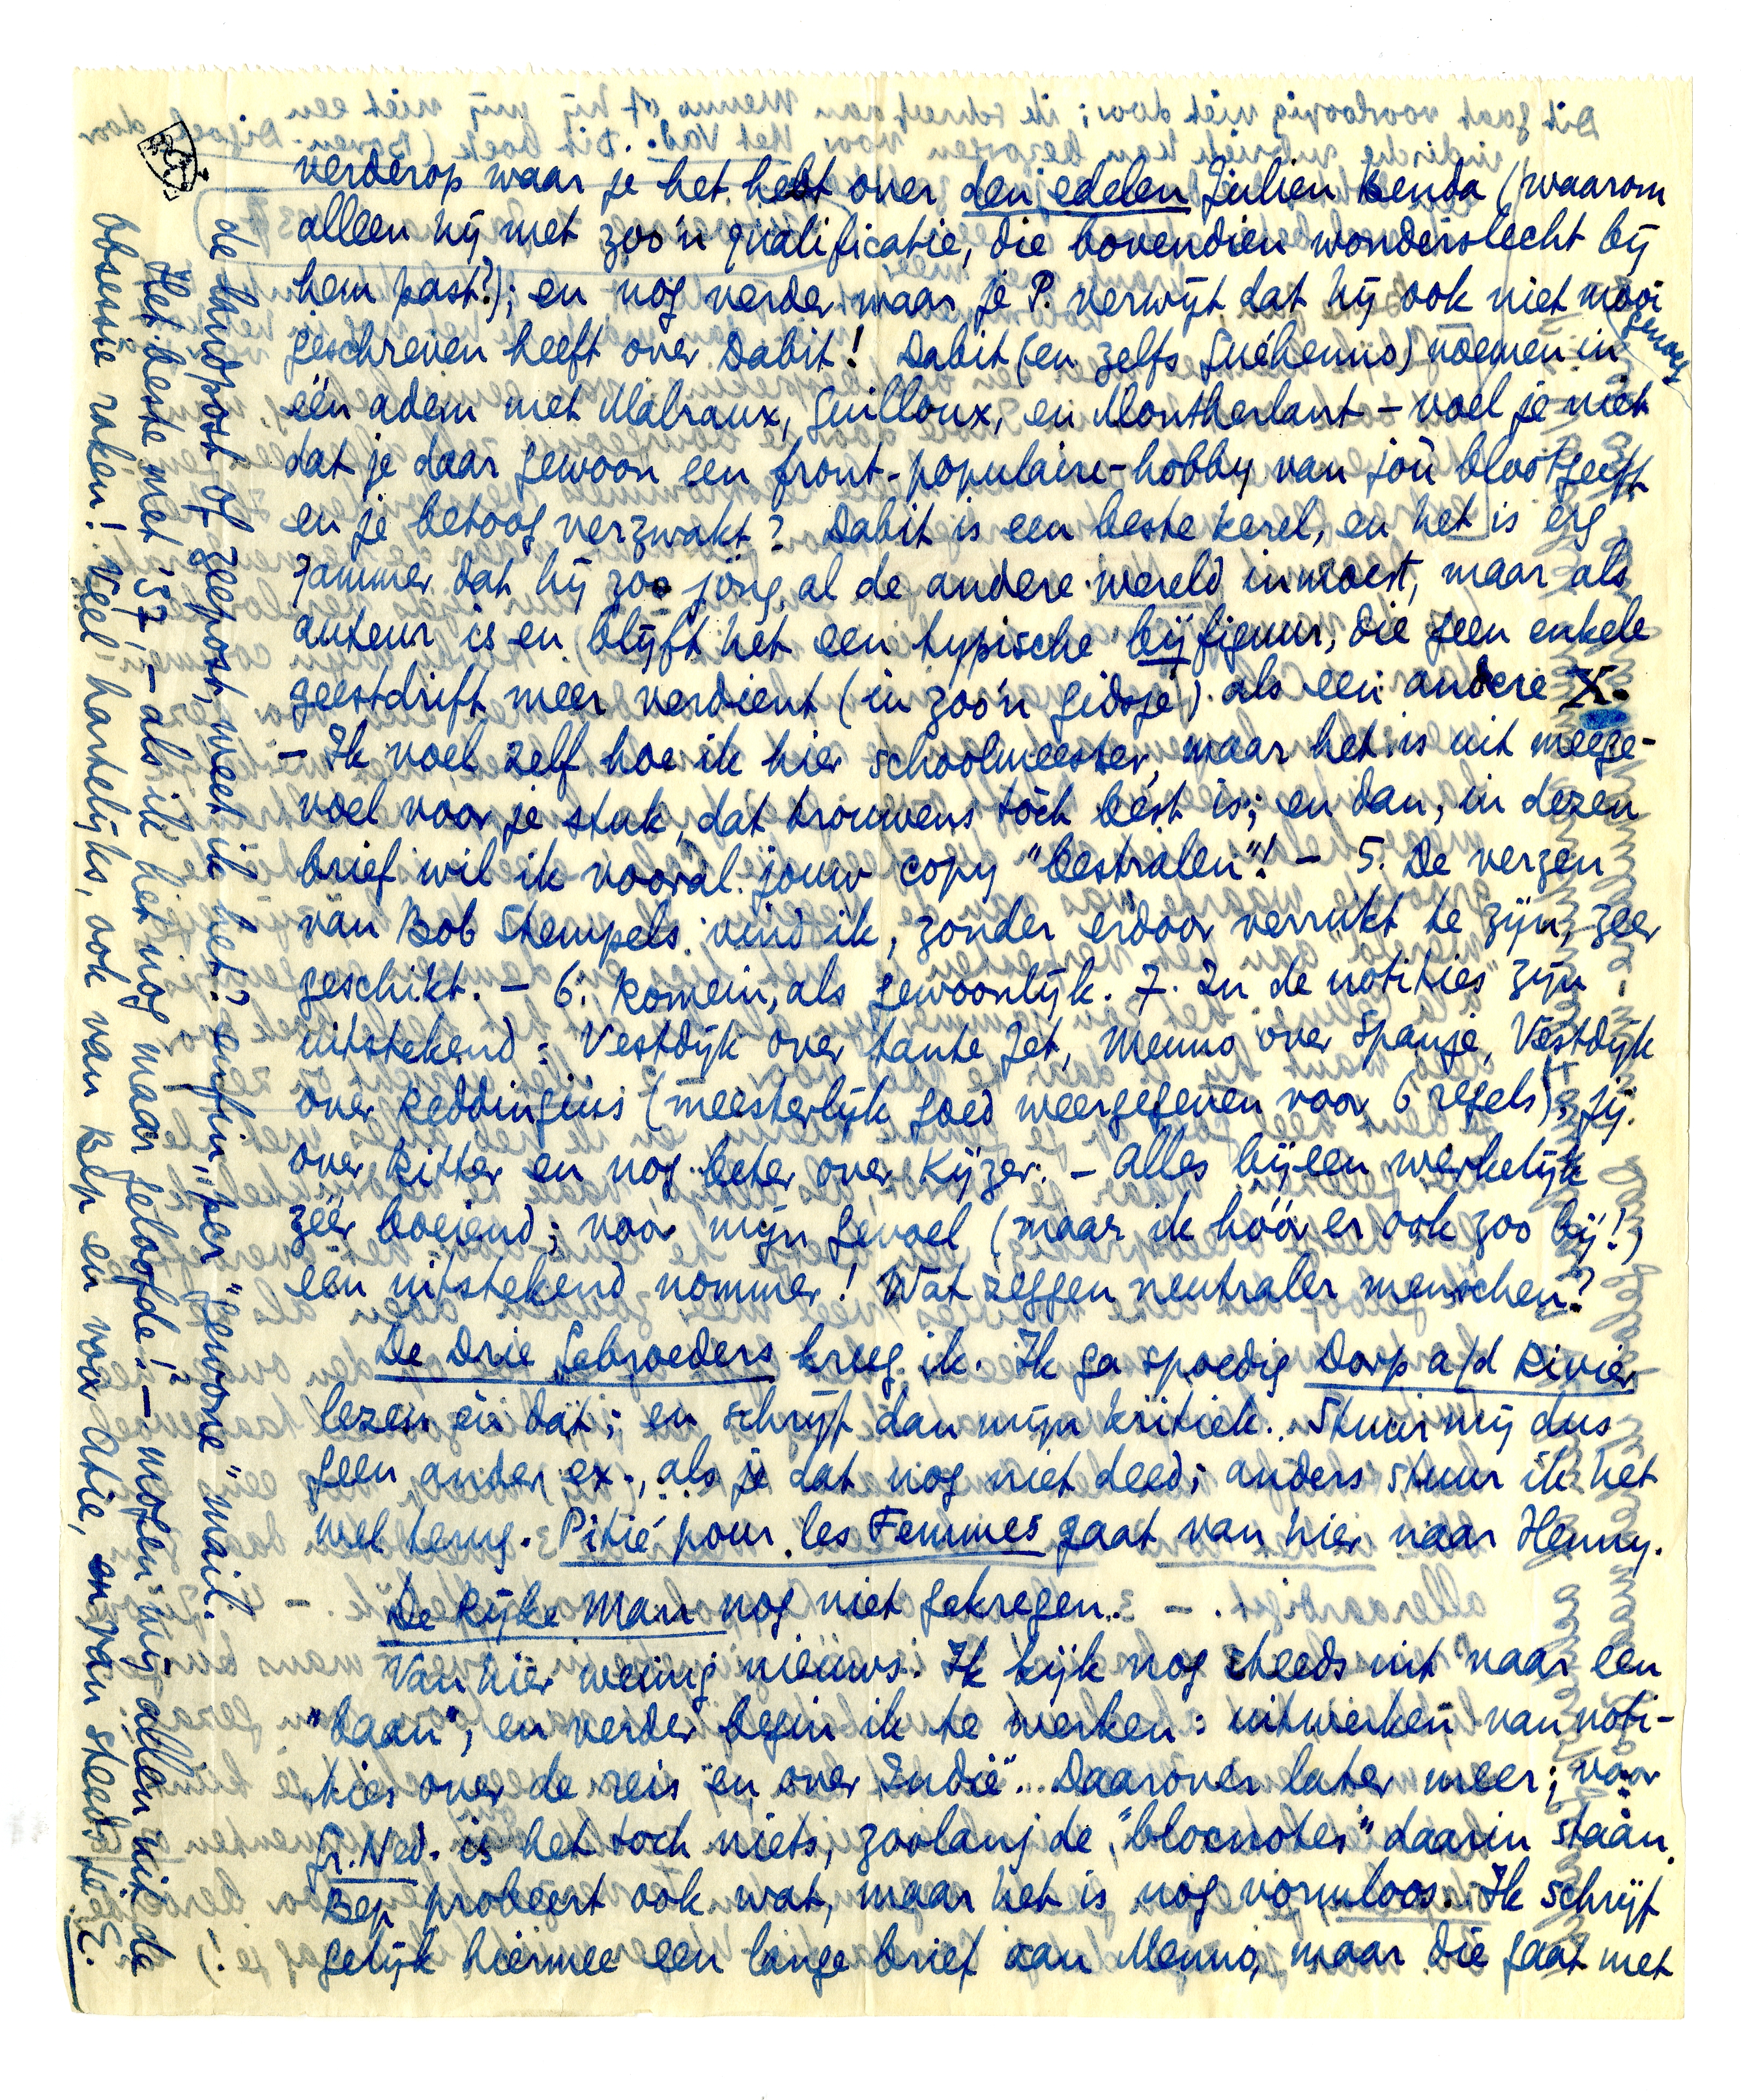 verderop waar je het hebt over den edelen Julien Benda (waarom
alleen hij met zoo'n qualificatie, die bovendien wonderslecht bij
hem past?); en nog verder waar je P. verwijt dat hij ook niet mooi genoeg
geschreven heeft over Dabit! Dabit (en zelfs Guéhenno) noemen in
één adem met Malraux, Guilloux, en Montherlant – voel je niet
dat je daar gewoon een front-populaire-hobby van joù blootgeeft
en je betoog verzwakt? Dabit is een beste kerel, en het is erg
jammer dat hij zoo jong al de andere wereld inmoest, maar als
auteur is en blijft het een typische bijfiguur, die geen enkele
geestdrift meer verdient (in zoo'n gidsje) als een andere X.
– Ik voel zelf hoe ik hier schoolmeester, maar het is uit meege-
voel voor je stuk, dat trouwens tòch bést is; en dan, in dezen
brief wil ik vooral jouw copy "bestralen"! – 5. De verzen
van Bob Stempels vind ik, zonder erdoor verrukt te zijn, zeer
geschikt. – 6. Romein, als gewoonlijk. 7. In de notities zijn
uitstekend: Vestdijk over tante Jet, Menno over Spanje, Vestdijk
over Reddingius (meesterlijk goed weergegeven voor 6 regels), jij
over Ritter en nog beter over Kijzer. – Alles bijeen werkelijk
zéér boeiend; voor mijn gevoel (maar ik hóór er ook zoo bij!)
een uitstekend nommer! Wat zeggen neutraler menschen?
De Drie Gebroeders kreeg ik. Ik ga spoedig Dorp a/d Rivier
lezen èn dàt; en schrijf dan mijn kritiek. Stuur mij dus
geen ander ex., als je dat nog niet deed; anders stuur ik het
wel terug. Pitié pour les Femmes gaat van hier naar Henny.
De Rijke Man nog niet gekregen.
Van hier weinig nieuws. Ik kijk nog steeds uit naar een
"baan", en verder begin ik te werken: uitwerken van noti-
ties over de reis en over Indië. Daarover later meer; voor
Gr. Ned. is het toch niets, zoolang de "blocnotes" daarin stáán.
Bep probeert ook wat, maar het is nog vormloos. Ik schrijf
gelijk hiermee een lange brief aan Menno, maar die gaat met
de landpost of zeepost, weet ik het? enfin, per "gewone" mail.
Het beste met '37, – als ik het nog maar geloofde! – mogen wij allen uit de
obsessie raken! Veel hartelijks, ook van Bep en voor Atie, en van steeds je E.